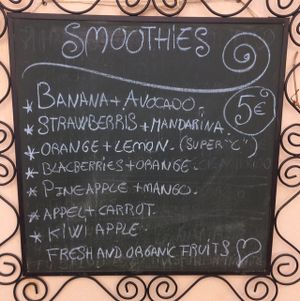 SMOOTHIES
* BANANA + AVOCADO. 5€
* STRAWBERRIS + MANDARINA
* ORANGE + LEMON. (SUPER "C")
* BLACBERRIES + ORANGE.
* PINEAPPLE + MANGO.
* APPEL + CARROT.
* KIWI APPLE
FRESH AND ORGANIC FRUITS